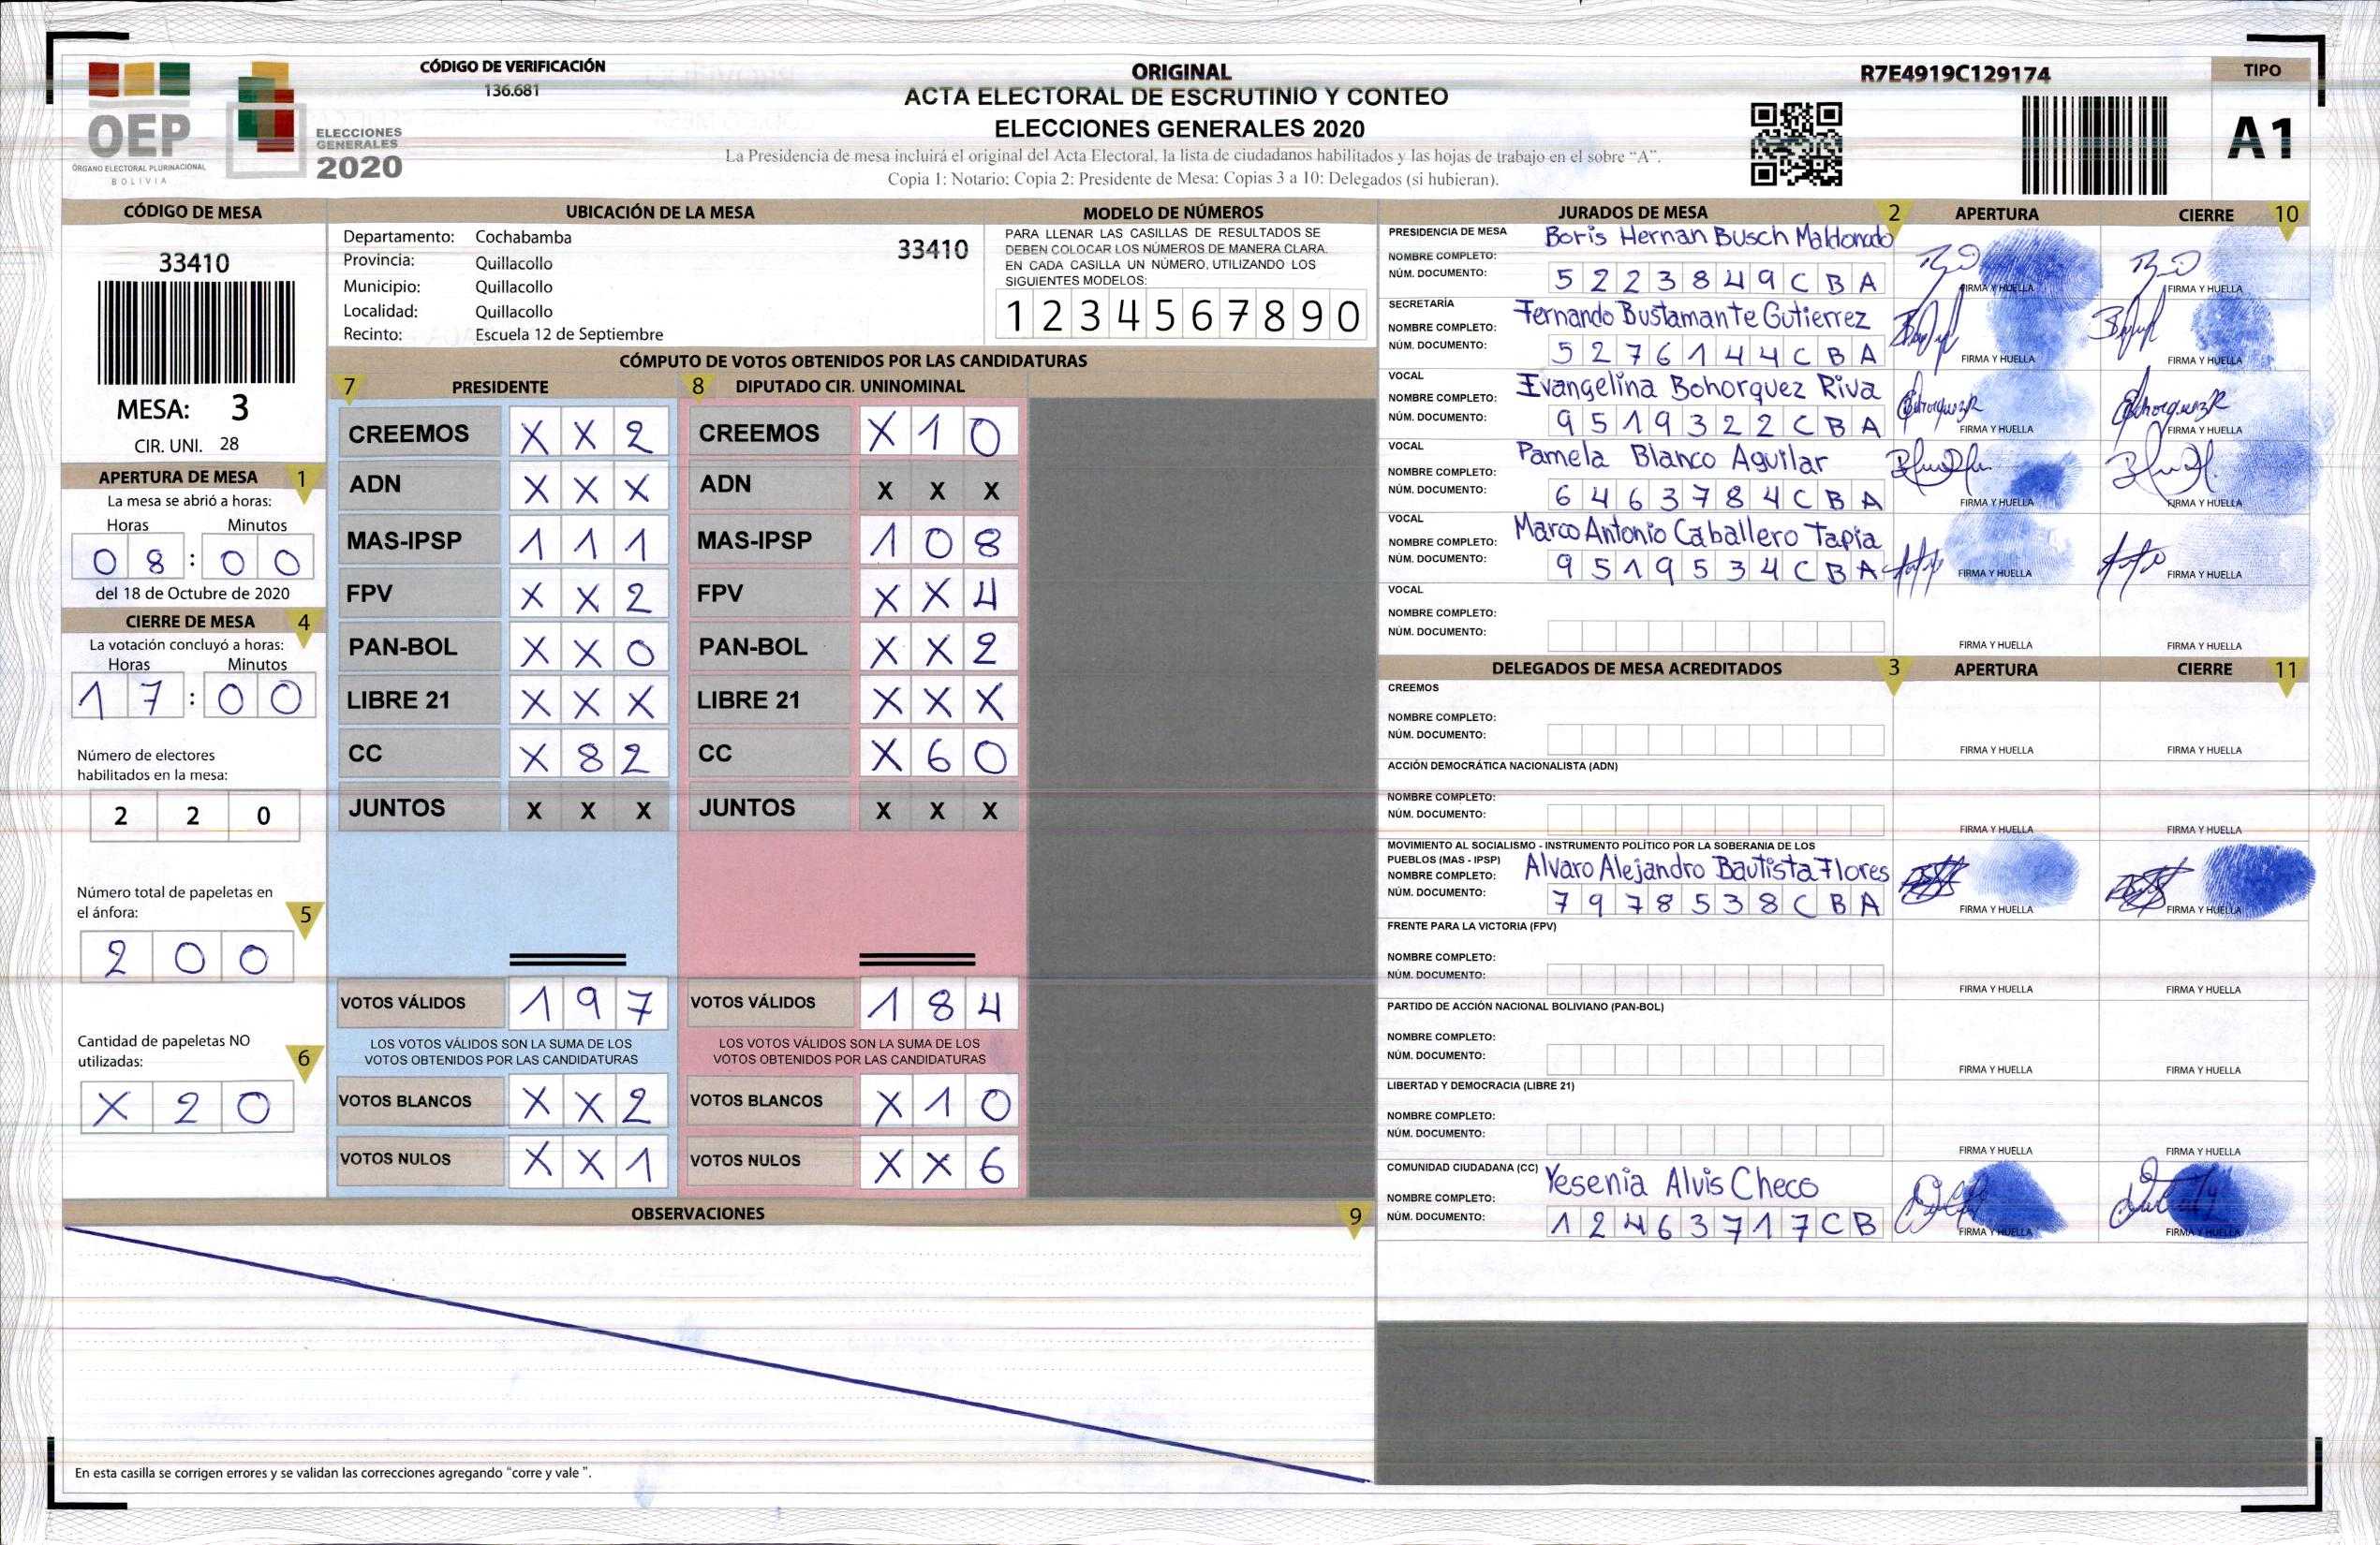 OEP
ÓRGANO ELECTORAL PLURINACIONAL
BOLIVIA
ELECCIONES
GENERALES
2020
CÓDIGO DE VERIFICACIÓN
136.681
ORIGINAL
ACTA ELECTORAL DE ESCRUTINIO Y CONTEO
ELECCIONES GENERALES 2020
La Presidencia de mesa incluirá el original del Acta Electoral, la lista de ciudadanos habilitados y las hojas de trabajo en el sobre “A”.
Copia 1: Notario; Copia 2: Presidente de Mesa; Copias 3 a 10: Delegados (si hubieran).
R7E4919C129174
TIPO
A1
CÓDIGO DE MESA
33410
MESA: 3
CIR. UNI. 28
APERTURA DE MESA 1
La mesa se abrió a horas:
Horas Minutos
0 8 : 0 0
del 18 de Octubre de 2020
CIERRE DE MESA 4
La votación concluyó a horas:
Horas Minutos
1 7 : 0 0
Número de electores
habilitados en la mesa:
2 2 0
Número total de papeletas en
el ánfora: 5
2 0 0
Cantidad de papeletas NO
utilizadas: 6
X 2 0
UBICACIÓN DE LA MESA
Departamento: Cochabamba
33410
Provincia: Quillacollo
Municipio: Quillacollo
Localidad: Quillacollo
Recinto: Escuela 12 de Septiembre
MODELO DE NÚMEROS
PARA LLENAR LAS CASILLAS DE RESULTADOS SE
DEBEN COLOCAR LOS NÚMEROS DE MANERA CLARA.
EN CADA CASILLA UN NÚMERO, UTILIZANDO LOS
SIGUIENTES MODELOS:
1 2 3 4 5 6 7 8 9 0
CÓMPUTO DE VOTOS OBTENIDOS POR LAS CANDIDATURAS
7 PRESIDENTE 8 DIPUTADO CIR. UNINOMINAL
CREEMOS X X 2 CREEMOS X 1 0
ADN X X X ADN X X X
MAS-IPSP 1 1 1 MAS-IPSP 1 0 8
FPV X X 2 FPV X X 4
PAN-BOL X X 0 PAN-BOL X X 2
LIBRE 21 X X X LIBRE 21 X X X
CC X 8 2 CC X 6 0
JUNTOS X X X JUNTOS X X X
VOTOS VÁLIDOS 1 9 7 VOTOS VÁLIDOS 1 8 4
LOS VOTOS VÁLIDOS SON LA SUMA DE LOS LOS VOTOS VÁLIDOS SON LA SUMA DE LOS
VOTOS OBTENIDOS POR LAS CANDIDATURAS VOTOS OBTENIDOS POR LAS CANDIDATURAS
VOTOS BLANCOS X X 2 VOTOS BLANCOS X 1 0
VOTOS NULOS X X 1 VOTOS NULOS X X 6
OBSERVACIONES 9
En esta casilla se corrigen errores y se validan las correcciones agregando “corre y vale ”.
JURADOS DE MESA 2 APERTURA CIERRE 10
PRESIDENCIA DE MESA
NOMBRE COMPLETO: Boris Hernan Busch Maldonado
NÚM. DOCUMENTO: 5 2 2 3 8 4 9 C B A
FIRMA Y HUELLA FIRMA Y HUELLA
SECRETARÍA
NOMBRE COMPLETO: Fernando Bustamante Gutierrez
NÚM. DOCUMENTO: 5 2 7 6 1 4 4 C B A
FIRMA Y HUELLA FIRMA Y HUELLA
VOCAL
NOMBRE COMPLETO: Evangelina Bohorquez Riva
NÚM. DOCUMENTO: 9 5 1 9 3 2 2 C B A
FIRMA Y HUELLA FIRMA Y HUELLA
VOCAL
NOMBRE COMPLETO: Pamela Blanco Aguilar
NÚM. DOCUMENTO: 6 4 6 3 7 8 4 C B A
FIRMA Y HUELLA FIRMA Y HUELLA
VOCAL
NOMBRE COMPLETO: Marco Antonio Caballero Tapia
NÚM. DOCUMENTO: 9 5 1 9 5 3 4 C B A
FIRMA Y HUELLA FIRMA Y HUELLA
VOCAL
NOMBRE COMPLETO:
NÚM. DOCUMENTO:
FIRMA Y HUELLA FIRMA Y HUELLA
DELEGADOS DE MESA ACREDITADOS 3 APERTURA CIERRE 11
CREEMOS
NOMBRE COMPLETO:
NÚM. DOCUMENTO:
FIRMA Y HUELLA FIRMA Y HUELLA
ACCIÓN DEMOCRÁTICA NACIONALISTA (ADN)
NOMBRE COMPLETO:
NÚM. DOCUMENTO:
FIRMA Y HUELLA FIRMA Y HUELLA
MOVIMIENTO AL SOCIALISMO - INSTRUMENTO POLÍTICO POR LA SOBERANIA DE LOS
PUEBLOS (MAS - IPSP)
NOMBRE COMPLETO: Alvaro Alejandro Bautista Flores
NÚM. DOCUMENTO: 7 9 7 8 5 3 8 C B A
FIRMA Y HUELLA FIRMA Y HUELLA
FRENTE PARA LA VICTORIA (FPV)
NOMBRE COMPLETO:
NÚM. DOCUMENTO:
FIRMA Y HUELLA FIRMA Y HUELLA
PARTIDO DE ACCIÓN NACIONAL BOLIVIANO (PAN-BOL)
NOMBRE COMPLETO:
NÚM. DOCUMENTO:
FIRMA Y HUELLA FIRMA Y HUELLA
LIBERTAD Y DEMOCRACIA (LIBRE 21)
NOMBRE COMPLETO:
NÚM. DOCUMENTO:
FIRMA Y HUELLA FIRMA Y HUELLA
COMUNIDAD CIUDADANA (CC)
NOMBRE COMPLETO: Yesenia Alvis Checo
NÚM. DOCUMENTO: 1 2 4 6 3 7 1 7 C B
FIRMA Y HUELLA FIRMA Y HUELLA